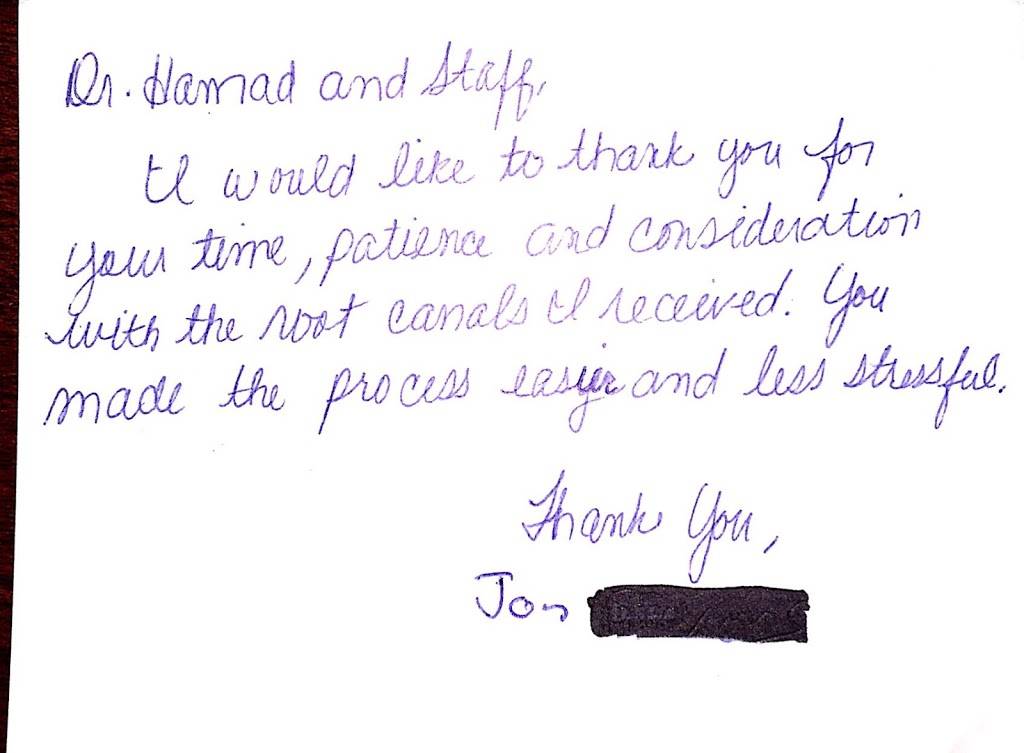 Dr. Hamad and Staff,
I would like to thank you for
your time, patience and consideration
with the root canals I received. You
made the process easier and less stressful.
Thank You,
Jon